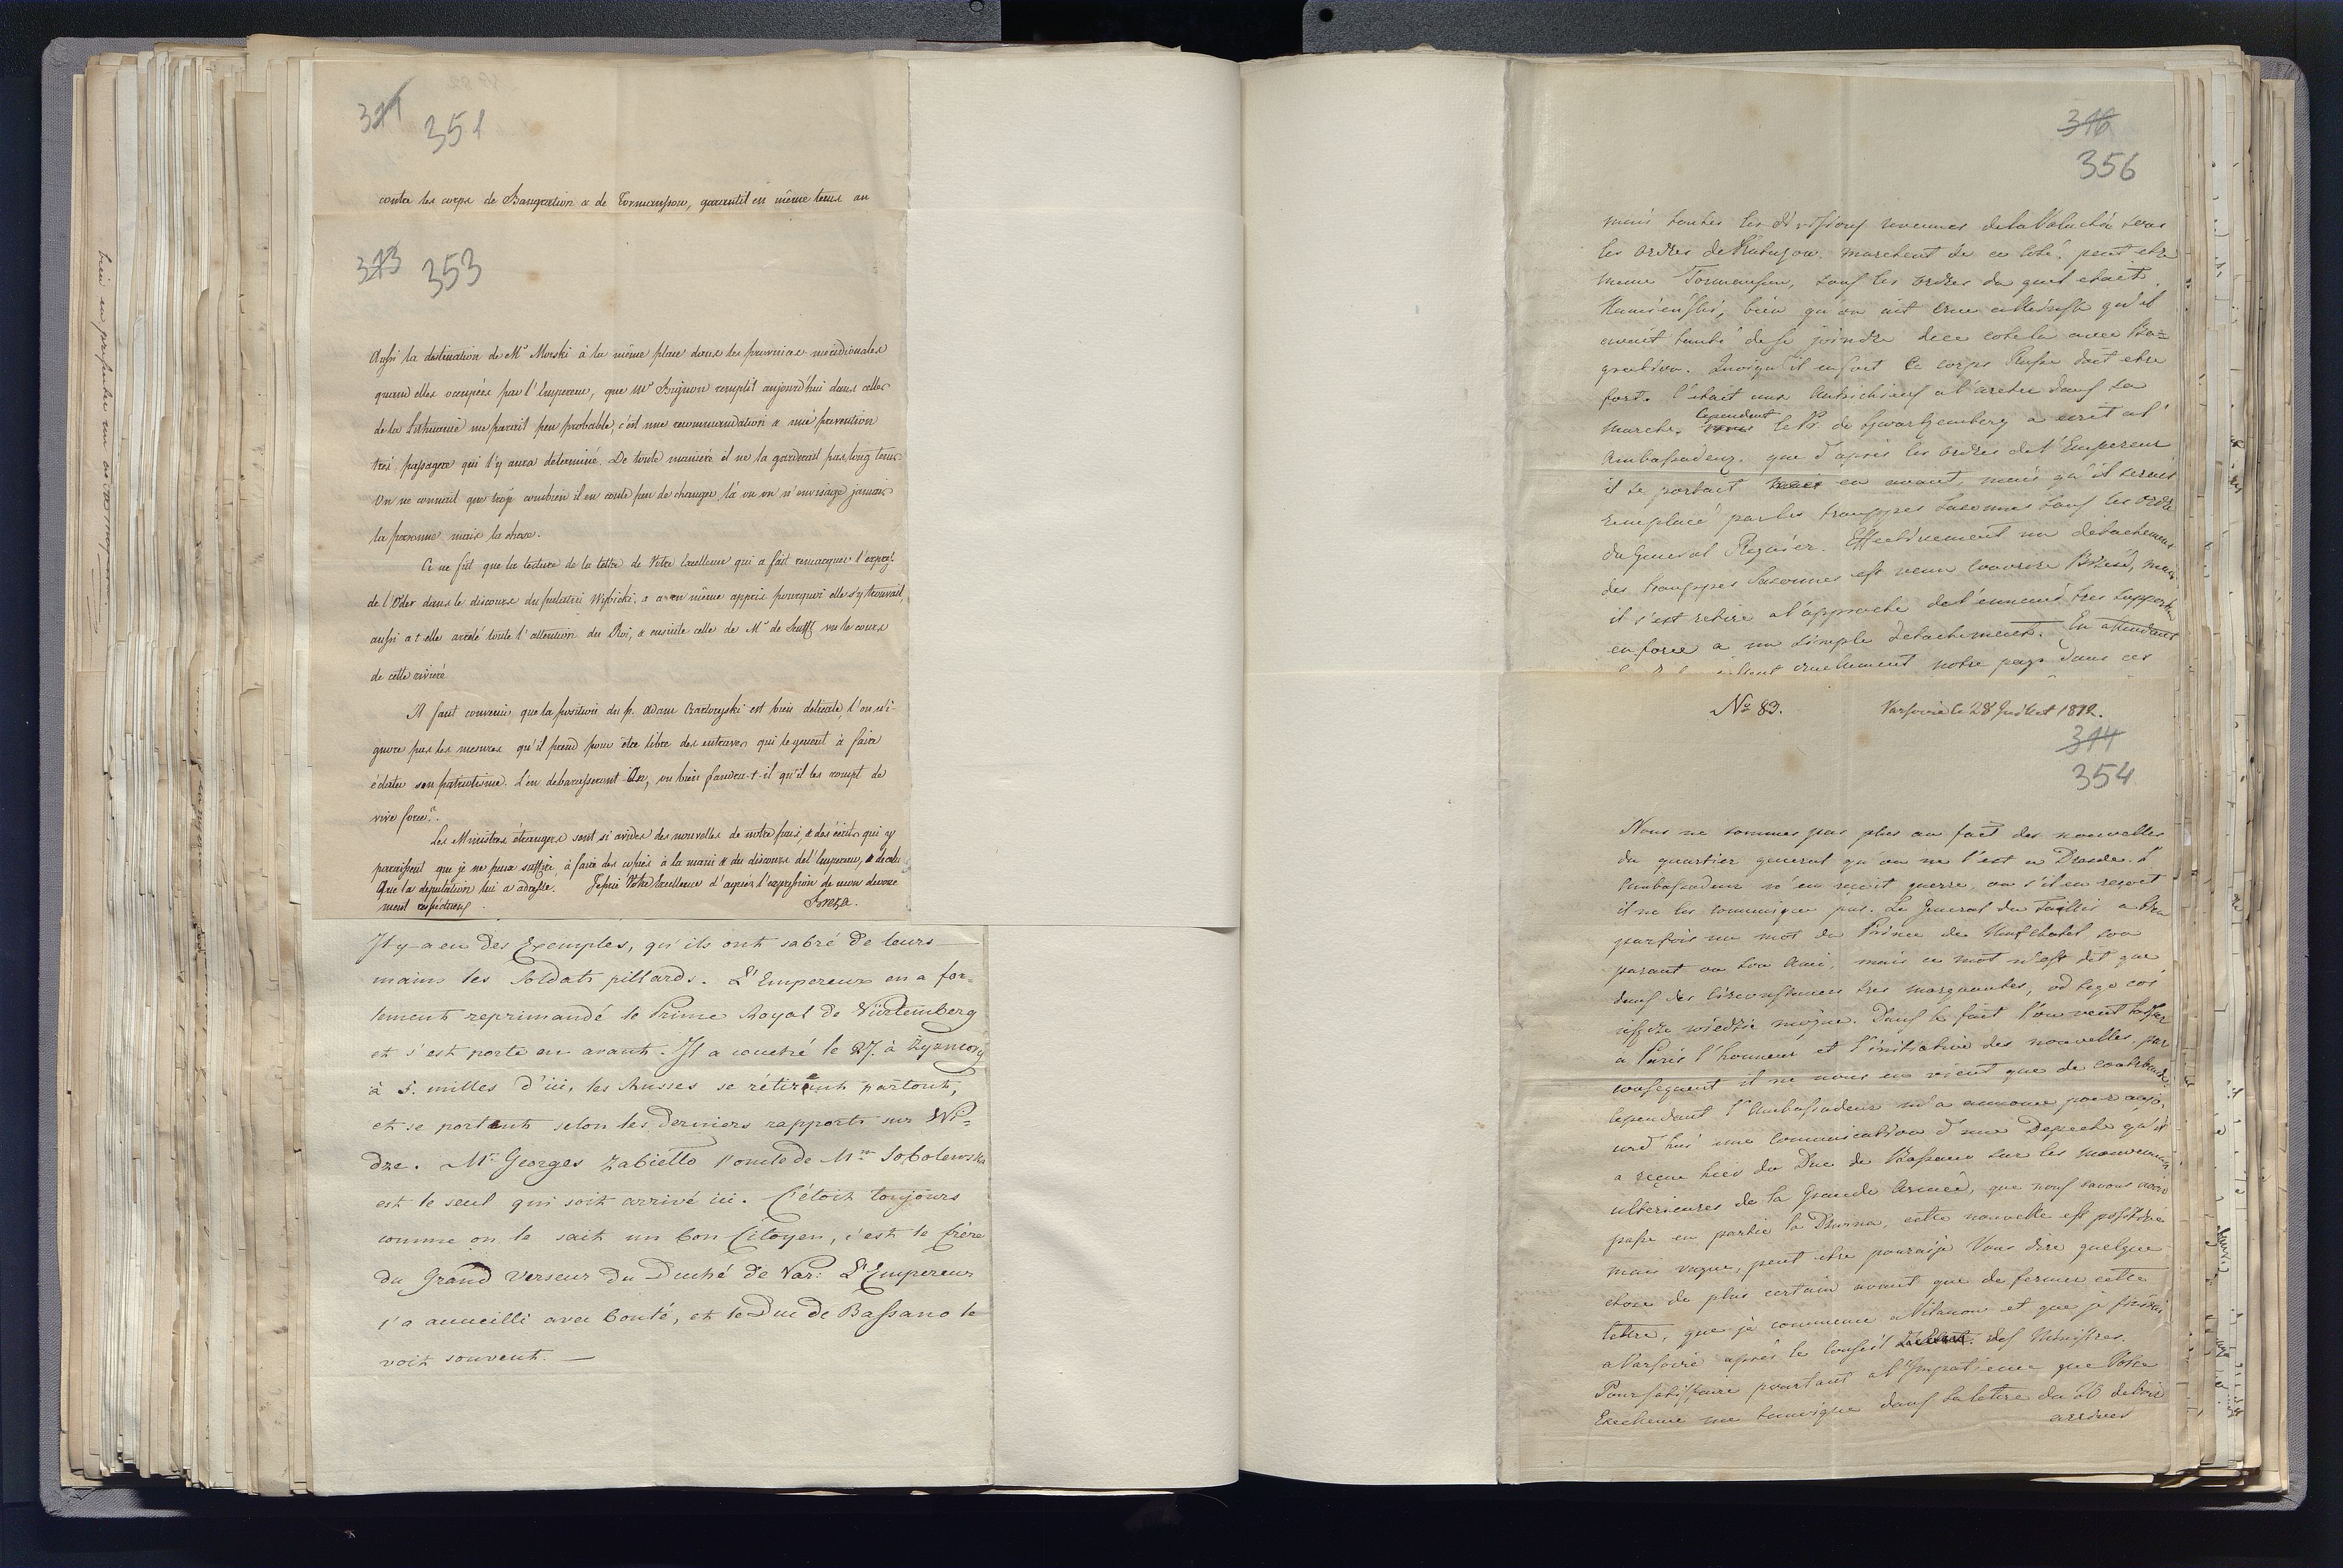 311 351
contre les corps de Bangration & de Tormansow, garantit en même tems au
313 353
Aussi la destination de Mr Morski à la même place dans les provinces méridionales
quand elles occupées par l'Empereur, que Mr Bignon remplit aujourd'hui dans celles
de la Lithuanie me parait peu probable, c'est une recommandation & une prévention
très passagere qui l'y aura determiné. De toute manière il ne la garderait pas long tems
On ne connait que trop combien il en coute peu de changer, là ou on n'envisage jamais
la personne mais la chose.
Ce ne fut que la lecture de la lettre de Votre Excellence qui a fait remarquer l'expres:
de l'Oder dans le discours du palatin Wybicki, & a en même appris pourquoi elle s'y trouvait,
aussi a t elle arrêté toute l'attention du Roi, & ensuite celle de Mr de Senfft vu le cours
de cette rivière
Il faut convenir que la position du p. Adam Czartoryski est bien delicate l'on n'i-
gnore pas les mesures qu'il prend pour être libre des entraves qui le genent à faire
éclater son patriotisme. L'en debarasseront -ils, ou bien faudra-t-il qu'il les rompt de
vive force?
Les Ministres étrangers sont si avides des nouvelles de notre pais, & des écrits qui y
paraissent que je ne puis suffire à faire des copies à la main & du discours de l'Empereur, & de celui
Que la deputation lui a adressé. Je prie Votre Excellence d'agréer l'expression de mon devoue
ment respectueux Breza.
Il y a eu des Exemples, qu'ils ont sabré de leurs
mains les Soldats pillards. L'Empereur en a for-
tement reprimandé le Prince Royal de Würtemberg
et s'est porté en avant. Il a couché le 27. à Zyzmory
à 5. milles d'ici, les Russes se rétirent partout,
et se portent selon les derniers rapports sur Wi-
dze. Mr. Georges Zabiello l'oncle de Mme Sobolewska
est le seul qui soit arrivé ici. C'étoit toujours
comme on le sait un bon Citoyen, c'est le frère
du Grand Verseur du Duché de Var: L'Empereur
l'a accueilli avec bonté, et le Duc de Bassano le
voit souvent. —
316
356
mais toutes les divisions revenues de la Valachie sous
les ordres de Kutusow. marchent de ce coté, peut etre
meme Tormansow, sous les ordres du quel etait
Kamienski, bien qu'on ait crue qu'il
avait tenté de se joindre de ce coté la avec Ba=
gration. Quoiqu'il en soit ce corps Russe doit etre
fort. C'etait aux Autrichiens a l'areter dans sa
marche. Cependant le Pr. de Schwartzemberg a ecrit a l'
Ambassadeur. que d'apres les ordres de l'Empereur
il se portait en avant, mais qu'il serait
remplacé par les trouppes Saxonnes sous les ordres
du General Regnier. Effectivement un detachement
des trouppes Saxonnes est venu couvrire Brzesć, mais
il s'est retiré a l'approche de l'ennemi tres superieur
en force a un simple detachement. En attendant
cruellement notre pays dans ces
No 83. Varsovie le 28 Juillet 1812.
314
354
Nous ne sommes pas plus au fait des nouvelles
du quartier general qu'on ne l'est a Dresde. L'
Ambassadeur n'en recoit guerre, ou s'il en reçoit
il ne les comunique pas. Le General du Taillis a bien
parfois un mot du Prince de Neufchatel son
parant ou son ami, mais ce mot n'est dit que
dans des circonstances tres marquantes, od tego coś
wiedzie można. Dans le fait l'on veut laisser
a Paris l'honneur et l'initiative des nouvelles, par
consequent il ne nous en vient que de contrebande.
Cependant l'Ambassadeur m'a annoncé pour aujo-
urd'hui une comunication d'une Depeche qu'il
a reçue hier du Duc de Bassano sur les mouvements
ulterieures de la Grande Armée, que nous savons avoir
passé en partie la Dzwina, cette nouvelle est positive
mais vague, peut etre pouraije Vous dire quelque
chose de plus certain avant que de fermer cette
lettre, que je commence a Vilanow et que je finirai
a Varsovie après le conseil des Ministres.
Pour satisfaire pourtant a l'Impatience que Votre
Excellence me temoigne dans sa lettre du 20
arrivée